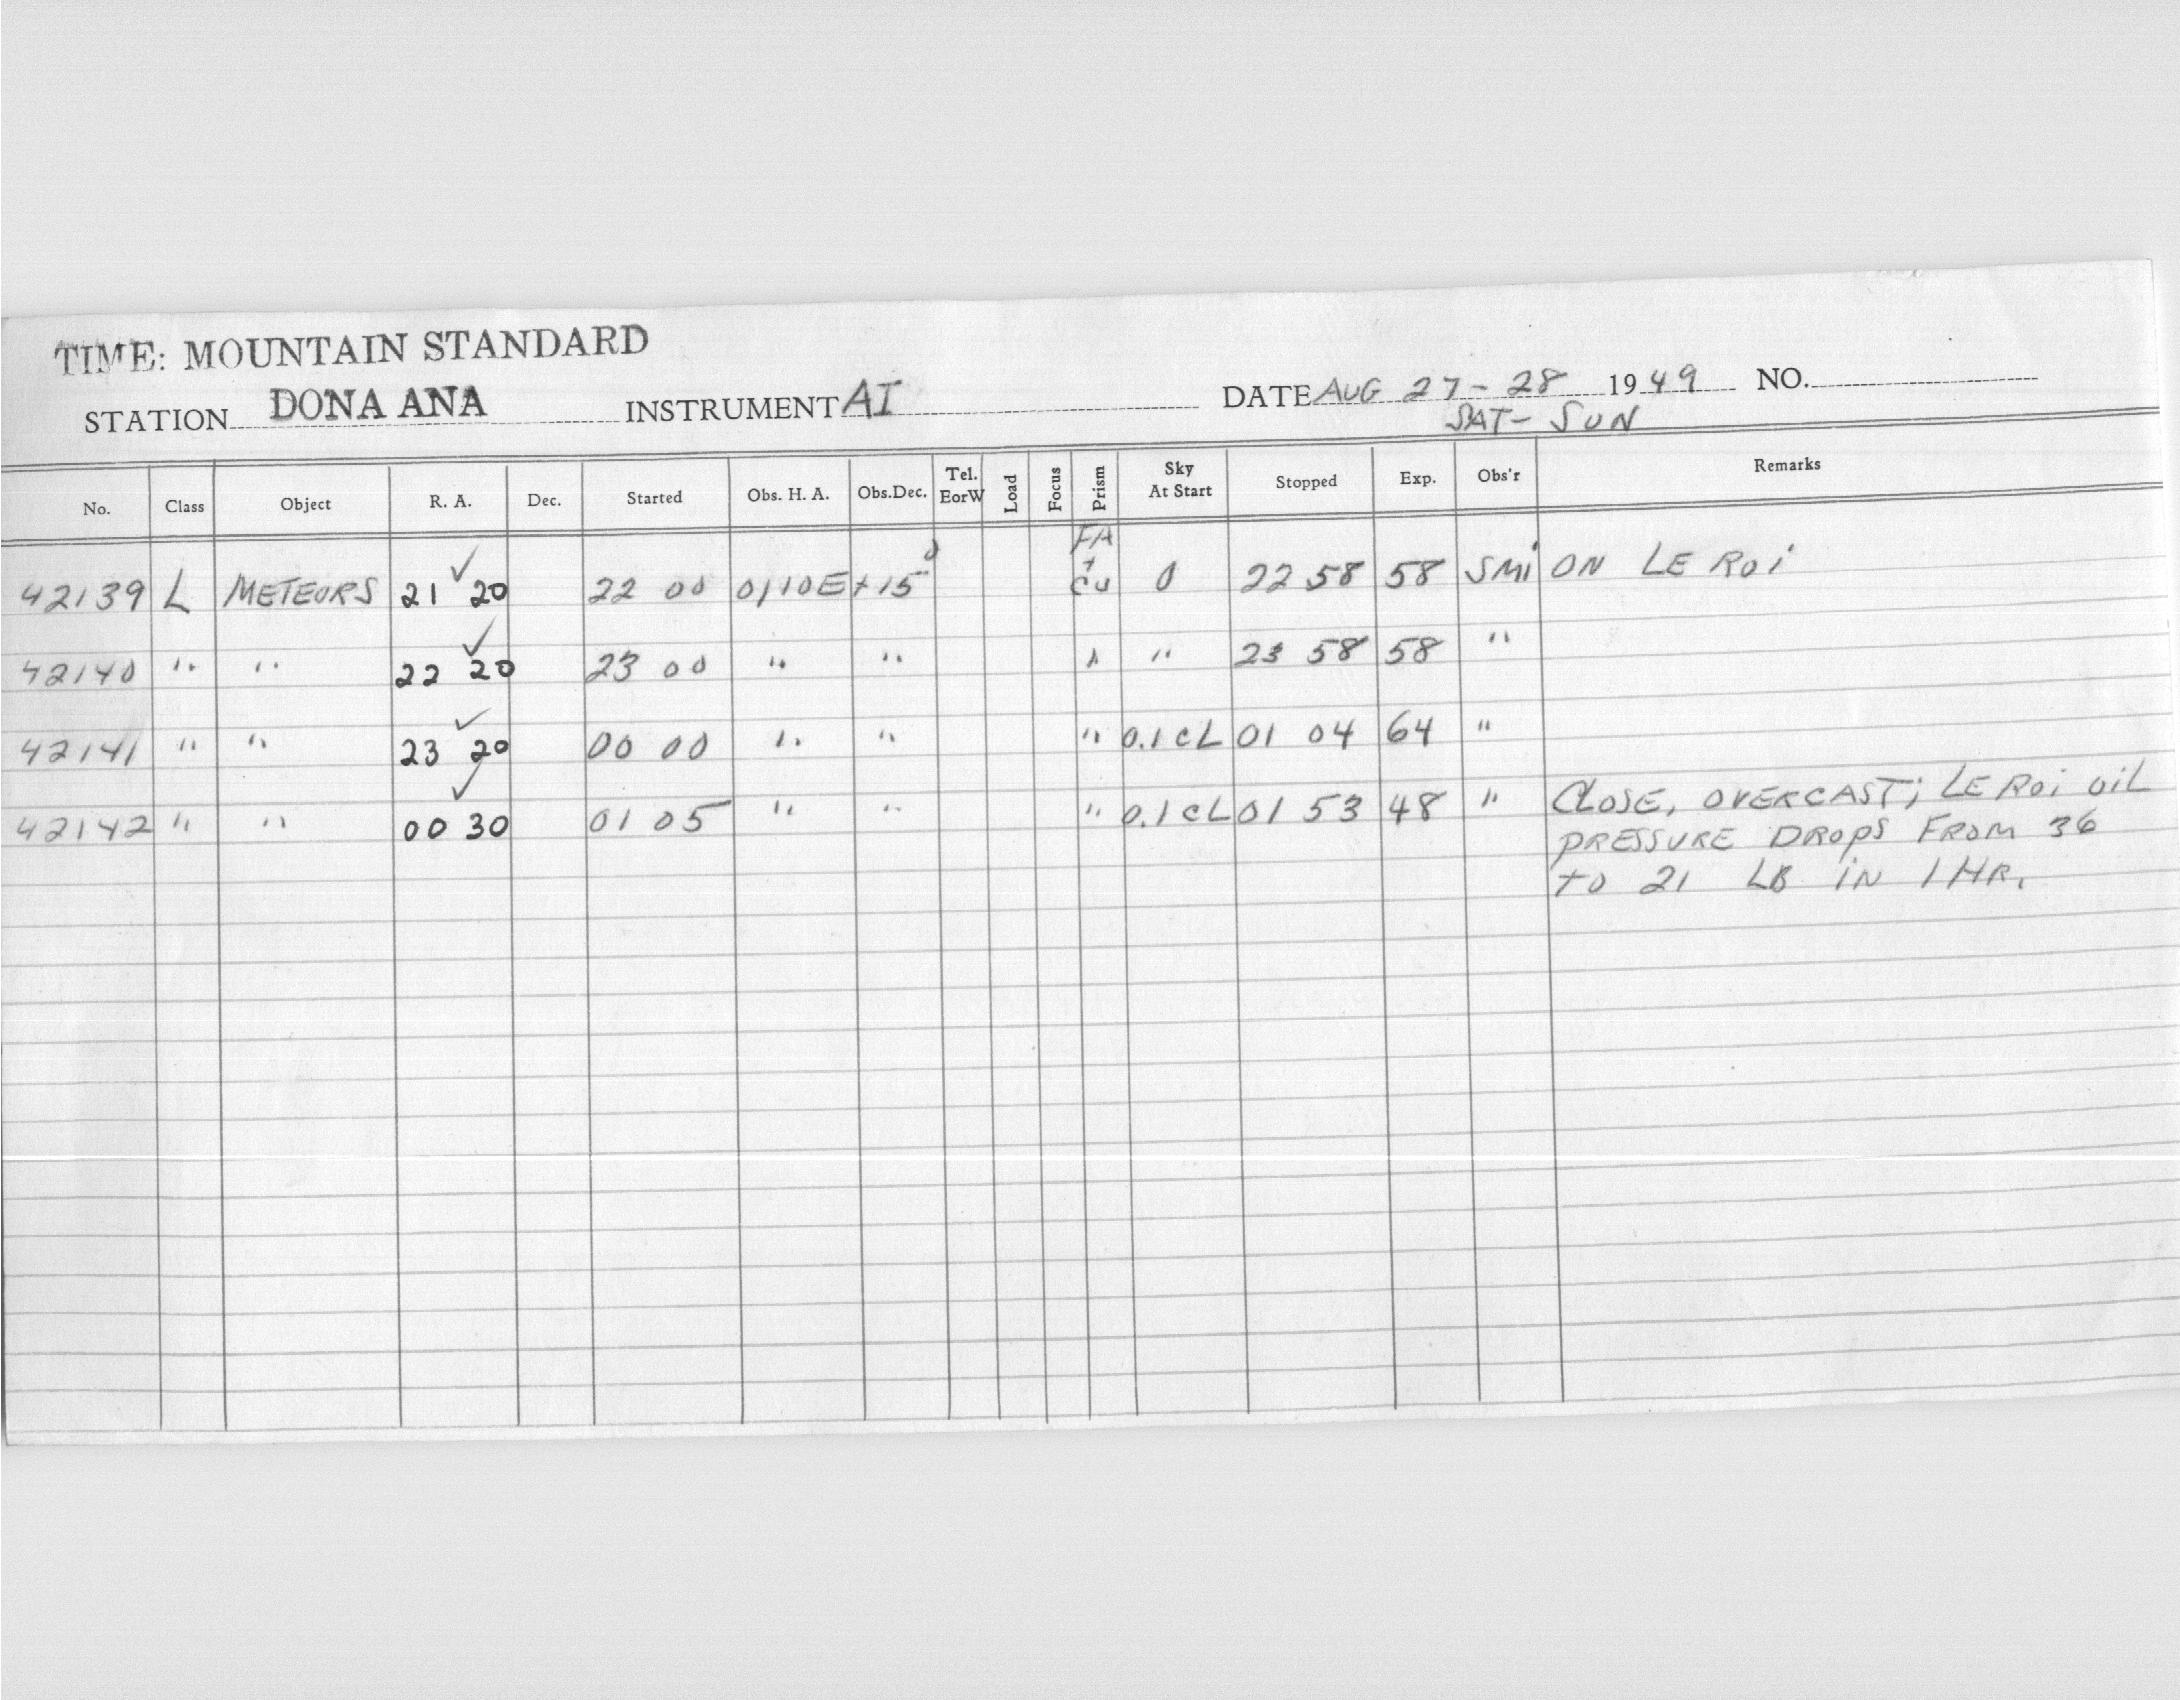 TIME: MOUNTAIN STANDARD
STATION DONA ANA INSTRUMENT AI DATE AUG 27-28 1949 NO.
SAT-SUN
No. Class Object R. A. Dec. Started Obs. H. A. Obs.Dec. Tel. EorW Load Focus Prism Sky At Start Stopped Exp. Obs'r Remarks
42139 L METEORS 21 20 ✓ 22 00 0110E +15° FA + CU 0 22 58 58 SMI ON LE ROI
42140 " " 22 20 ✓ 23 00 " " " " 23 58 58 "
42141 " " 23 20 ✓ 00 00 " " " 0.1 CL 01 04 64 "
42142 " " 00 30 ✓ 01 05 " " " 0.1 CL 01 53 48 " CLOSE, OVERCAST; LE ROI OIL
PRESSURE DROPS FROM 36
TO 21 LB IN 1 HR.